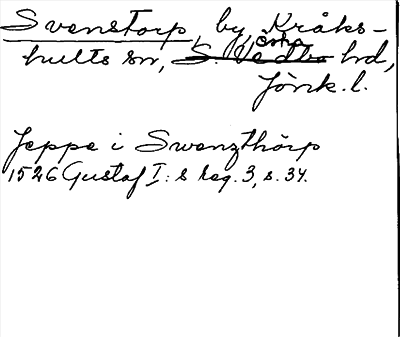 Svenstorp, by, Kråks-
hults sn, S. Vedbo hd,
Jönk. l.
Jeppe i Swenzthörp
1526 Gustaf I:s reg. 3, s. 34.